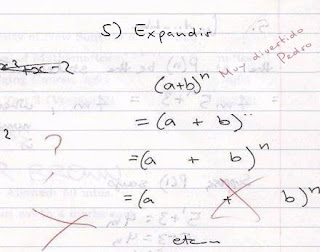 5) Expandir
x² + x - 2
(a+b)ⁿ
Muy divertido
Pedro
2
= (a + b)ⁿ
?
= (a + b)ⁿ
= (a + b)ⁿ
etc...